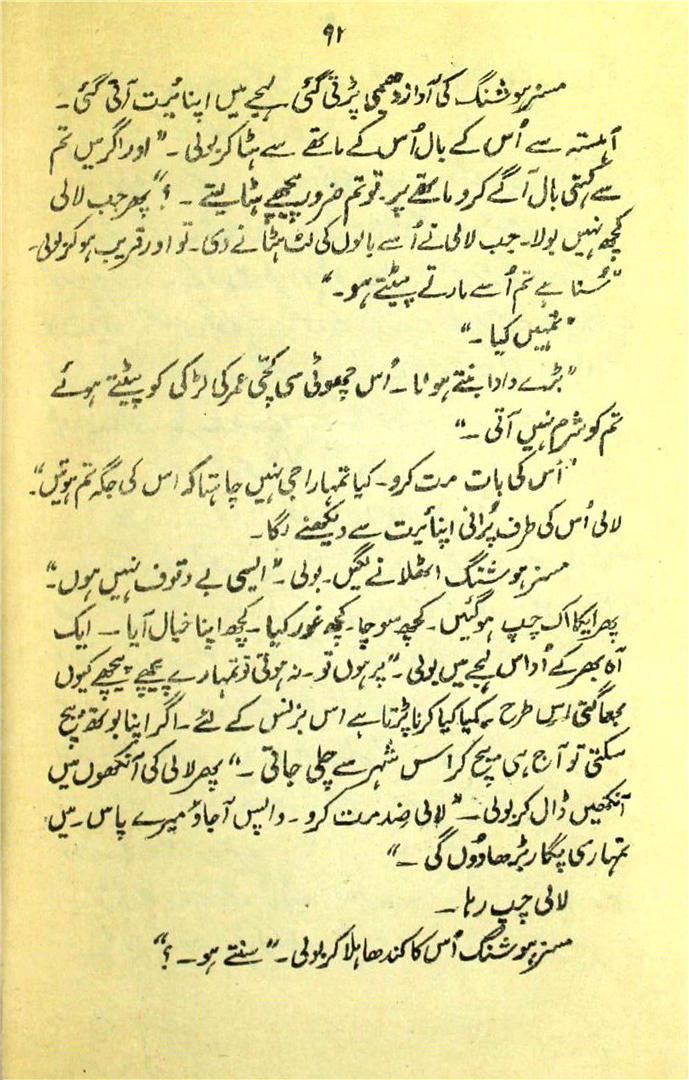 ۹۲
مسز ہوشنگ کی آواز دھیمی پڑتی گئی لہجے میں اپنائیت آتی گئی۔
آہستہ سے اُس کے بال اُس کے ماتھے سے ہٹا کر بولی۔ ”اور اگر میں تم
سے کہتی بال آگے کرو ماتھے پر۔ تو تم ضرور پیچھے ہٹا لیتے ۔ ؟“ پھر جب لالی
کچھ نہیں بولا۔ جب لالی نے اُسے بالوں کی لٹ ہٹانے دی۔ تو اور قریب ہو کر بولی۔
”سُنا ہے تم اُسے مارتے پیٹتے ہو۔“
”تمہیں کیا ۔“
”بڑے دادا بنتے ہو نا۔ اُس چھوٹی سی کچّی عمر کی لڑکی کو پیٹتے ہوئے
تم کو شرم نہیں آتی ۔“
”اُس کی بات مت کرو۔ کیا تمہارا جی نہیں چاہتا کہ اس کی جگہ تم ہوتیں۔“
لالی اُس کی طرف پُرانی اپنائیت سے دیکھنے لگا۔
مسز ہوشنگ اٹھلانے لگیں۔ بولی۔ ”ایسی بے وقوف نہیں ہوں۔“
پھر ایکا اک چپ ہو گئیں۔ کچھ سوچا۔ کچھ غور کیا۔ کچھ اپنا خیال آیا ۔ ایک
آہ بھر کے اُداس لہجے میں بولی ۔ ”پر ہوں تو ۔ نہ ہوتی تو تمہارے پیچھے پیچھے کیوں
بھاگتی اس طرح ۔ کیا کیا کرنا پڑتا ہے اس بزنس کے لئے ۔ اگر اپنا بوتھ بیچ
سکتی تو آج ہی بیچ کر اس شہر سے چلی جاتی ۔“ پھر لالی کی آنکھوں میں
آنکھیں ڈال کر بولی ۔ ”لالی ضد مت کرو ۔ واپس آ جاؤ میرے پاس ۔ میں
تمہاری پگار بڑھا دُوں گی ۔“
لالی چپ رہا ۔
مسز ہوشنگ اُس کا کندھا ہلا کر بولی ۔ ”سنتے ہو ۔ ؟“